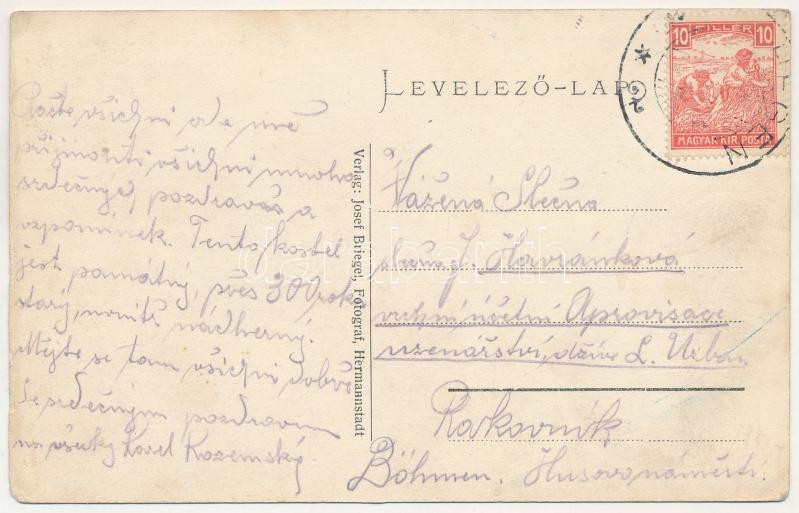 LEVELEZŐ-LAP
10 FILLÉR 10
MAGYAR KIR. POSTA
Račte všichni ode mně
přijmouti všichni mnoho
srdečných pozdravů a
vzpomínek. Tento kostel
jest památný, přes 300 roků
starý, uvnitř nádherný.
Mějte se tam všichni dobře
Se srdečným pozdravem
na všecky Karel Rozemský
Verlag: Josef Briegel, Fotograf, Hermannstadt
Vážená Slečna
J. Havránková
vrchní účetní Aprovisace
uzenářství, dříve L. Urban
Rakovník
Böhmen. Husovo náměstí.
darabanth